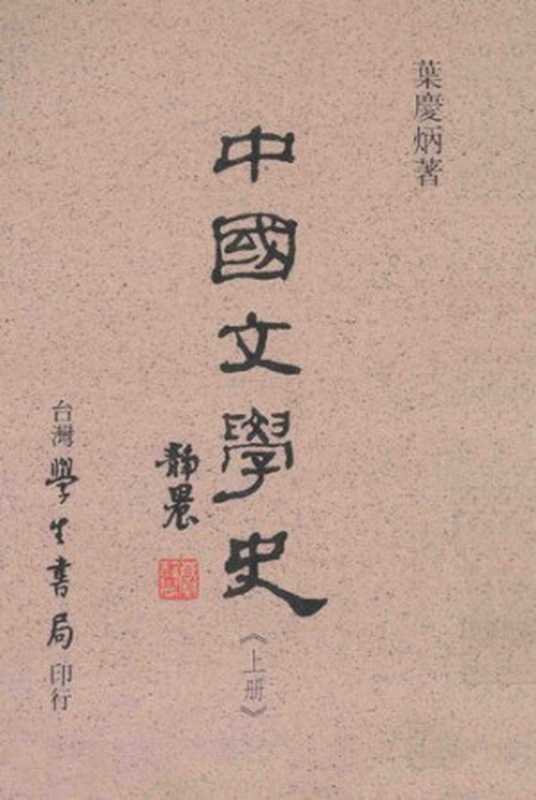 葉慶炳著
中國文學史
《上册》
靜農
台灣學生書局印行